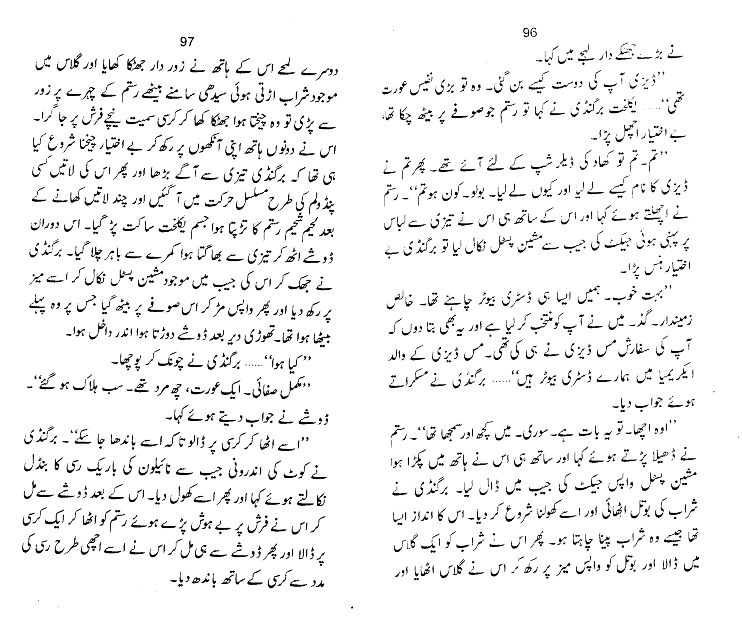 96
نے بڑے جھٹکے دار لہجے میں کہا۔
’’ڈیزی آپ کی دوست کیسے بن گئی۔ وہ تو بڑی نفیس عورت
تھی‘‘…… یکلخت برگنڈی نے کہا تو رستم جو صوفے پر بیٹھ چکا تھا،
بے اختیار اچھل پڑا۔
’’تم۔ تم تو کھاد کی ڈیلر شپ کے لئے آئے تھے۔ پھر تم نے
ڈیزی کا نام کیسے لے لیا اور کیوں لے لیا۔ بولو۔ کون ہو تم‘‘۔ رستم
نے اچھلتے ہوئے کہا اور اس کے ساتھ ہی اس نے تیزی سے لباس
پر پہنی ہوئی جیکٹ کی جیب سے مشین پسٹل نکال لیا تو برگنڈی بے
اختیار ہنس پڑا۔
’’بہت خوب۔ ہمیں ایسا ہی ڈسٹری بیوٹر چاہئے تھا۔ خالص
زمیندار۔ گڈ۔ میں نے آپ کو منتخب کر لیا ہے اور یہ بھی بتا دوں کہ
آپ کی سفارش مس ڈیزی نے ہی کی تھی۔ مس ڈیزی کے والد
ایکریمیا میں ہمارے ڈسٹری بیوٹر ہیں‘‘…… برگنڈی نے مسکراتے
ہوئے جواب دیا۔
’’اوہ اچھا۔ تو یہ بات ہے۔ سوری۔ میں کچھ اور سمجھا تھا‘‘۔ رستم
نے ڈھیلا پڑتے ہوئے کہا اور ساتھ ہی اس نے ہاتھ میں پکڑا ہوا
مشین پسٹل واپس جیکٹ کی جیب میں ڈال لیا۔ برگنڈی نے
شراب کی بوتل اٹھائی اور اسے کھولنا شروع کر دیا۔ اس کا انداز ایسا
تھا جیسے وہ شراب پینا چاہتا ہو۔ پھر اس نے شراب کو ایک گلاس
میں ڈالا اور بوتل کو واپس میز پر رکھ کر اس نے گلاس اٹھایا اور
97
دوسرے لمحے اس کے ہاتھ نے زور دار جھٹکا کھایا اور گلاس میں
موجود شراب اڑتی ہوئی سیدھی سامنے بیٹھے رستم کے چہرے پر زور
سے پڑی تو وہ چیختا ہوا جھٹکا کھا کر کرسی سمیت نیچے فرش پر جا گرا۔
اس نے دونوں ہاتھ اپنی آنکھوں پر رکھ کر بے اختیار چیخنا شروع کیا
ہی تھا کہ برگنڈی تیزی سے آگے بڑھا اور پھر اس کی لاتیں کسی
پنڈولم کی طرح مسلسل حرکت میں آ گئیں اور چند لاتیں کھانے کے
بعد لحیم شحیم رستم کا تڑپتا ہوا جسم یکلخت ساکت پڑ گیا۔ اس دوران
ڈوشے اٹھ کر تیزی سے بھاگتا ہوا کمرے سے باہر چلا گیا۔ برگنڈی
نے جھک کر اس کی جیب میں موجود مشین پسٹل نکال کر اسے میز
پر رکھ دیا اور پھر واپس مڑ کر اس صوفے پر بیٹھ گیا جس پر وہ پہلے
بیٹھا ہوا تھا۔ تھوڑی دیر بعد ڈوشے دوڑتا ہوا اندر داخل ہوا۔
’’کیا ہوا‘‘…… برگنڈی نے چونک کر پوچھا۔
’’مکمل صفائی۔ ایک عورت، چھ مرد تھے۔ سب ہلاک ہو گئے‘‘۔
ڈوشے نے جواب دیتے ہوئے کہا۔
’’اسے اٹھا کر کرسی پر ڈالو تاکہ اسے باندھا جا سکے‘‘۔ برگنڈی
نے کوٹ کی اندرونی جیب سے نائیلون کی باریک رسی کا بنڈل
نکالتے ہوئے کہا اور پھر اسے کھول دیا۔ اس کے بعد ڈوشے سے مل
کر اس نے فرش پر بے ہوش پڑے ہوئے رستم کو اٹھا کر ایک کرسی
پر ڈالا اور پھر ڈوشے سے ہی مل کر اس نے اسے اچھی طرح رسی کی
مدد سے کرسی کے ساتھ باندھ دیا۔